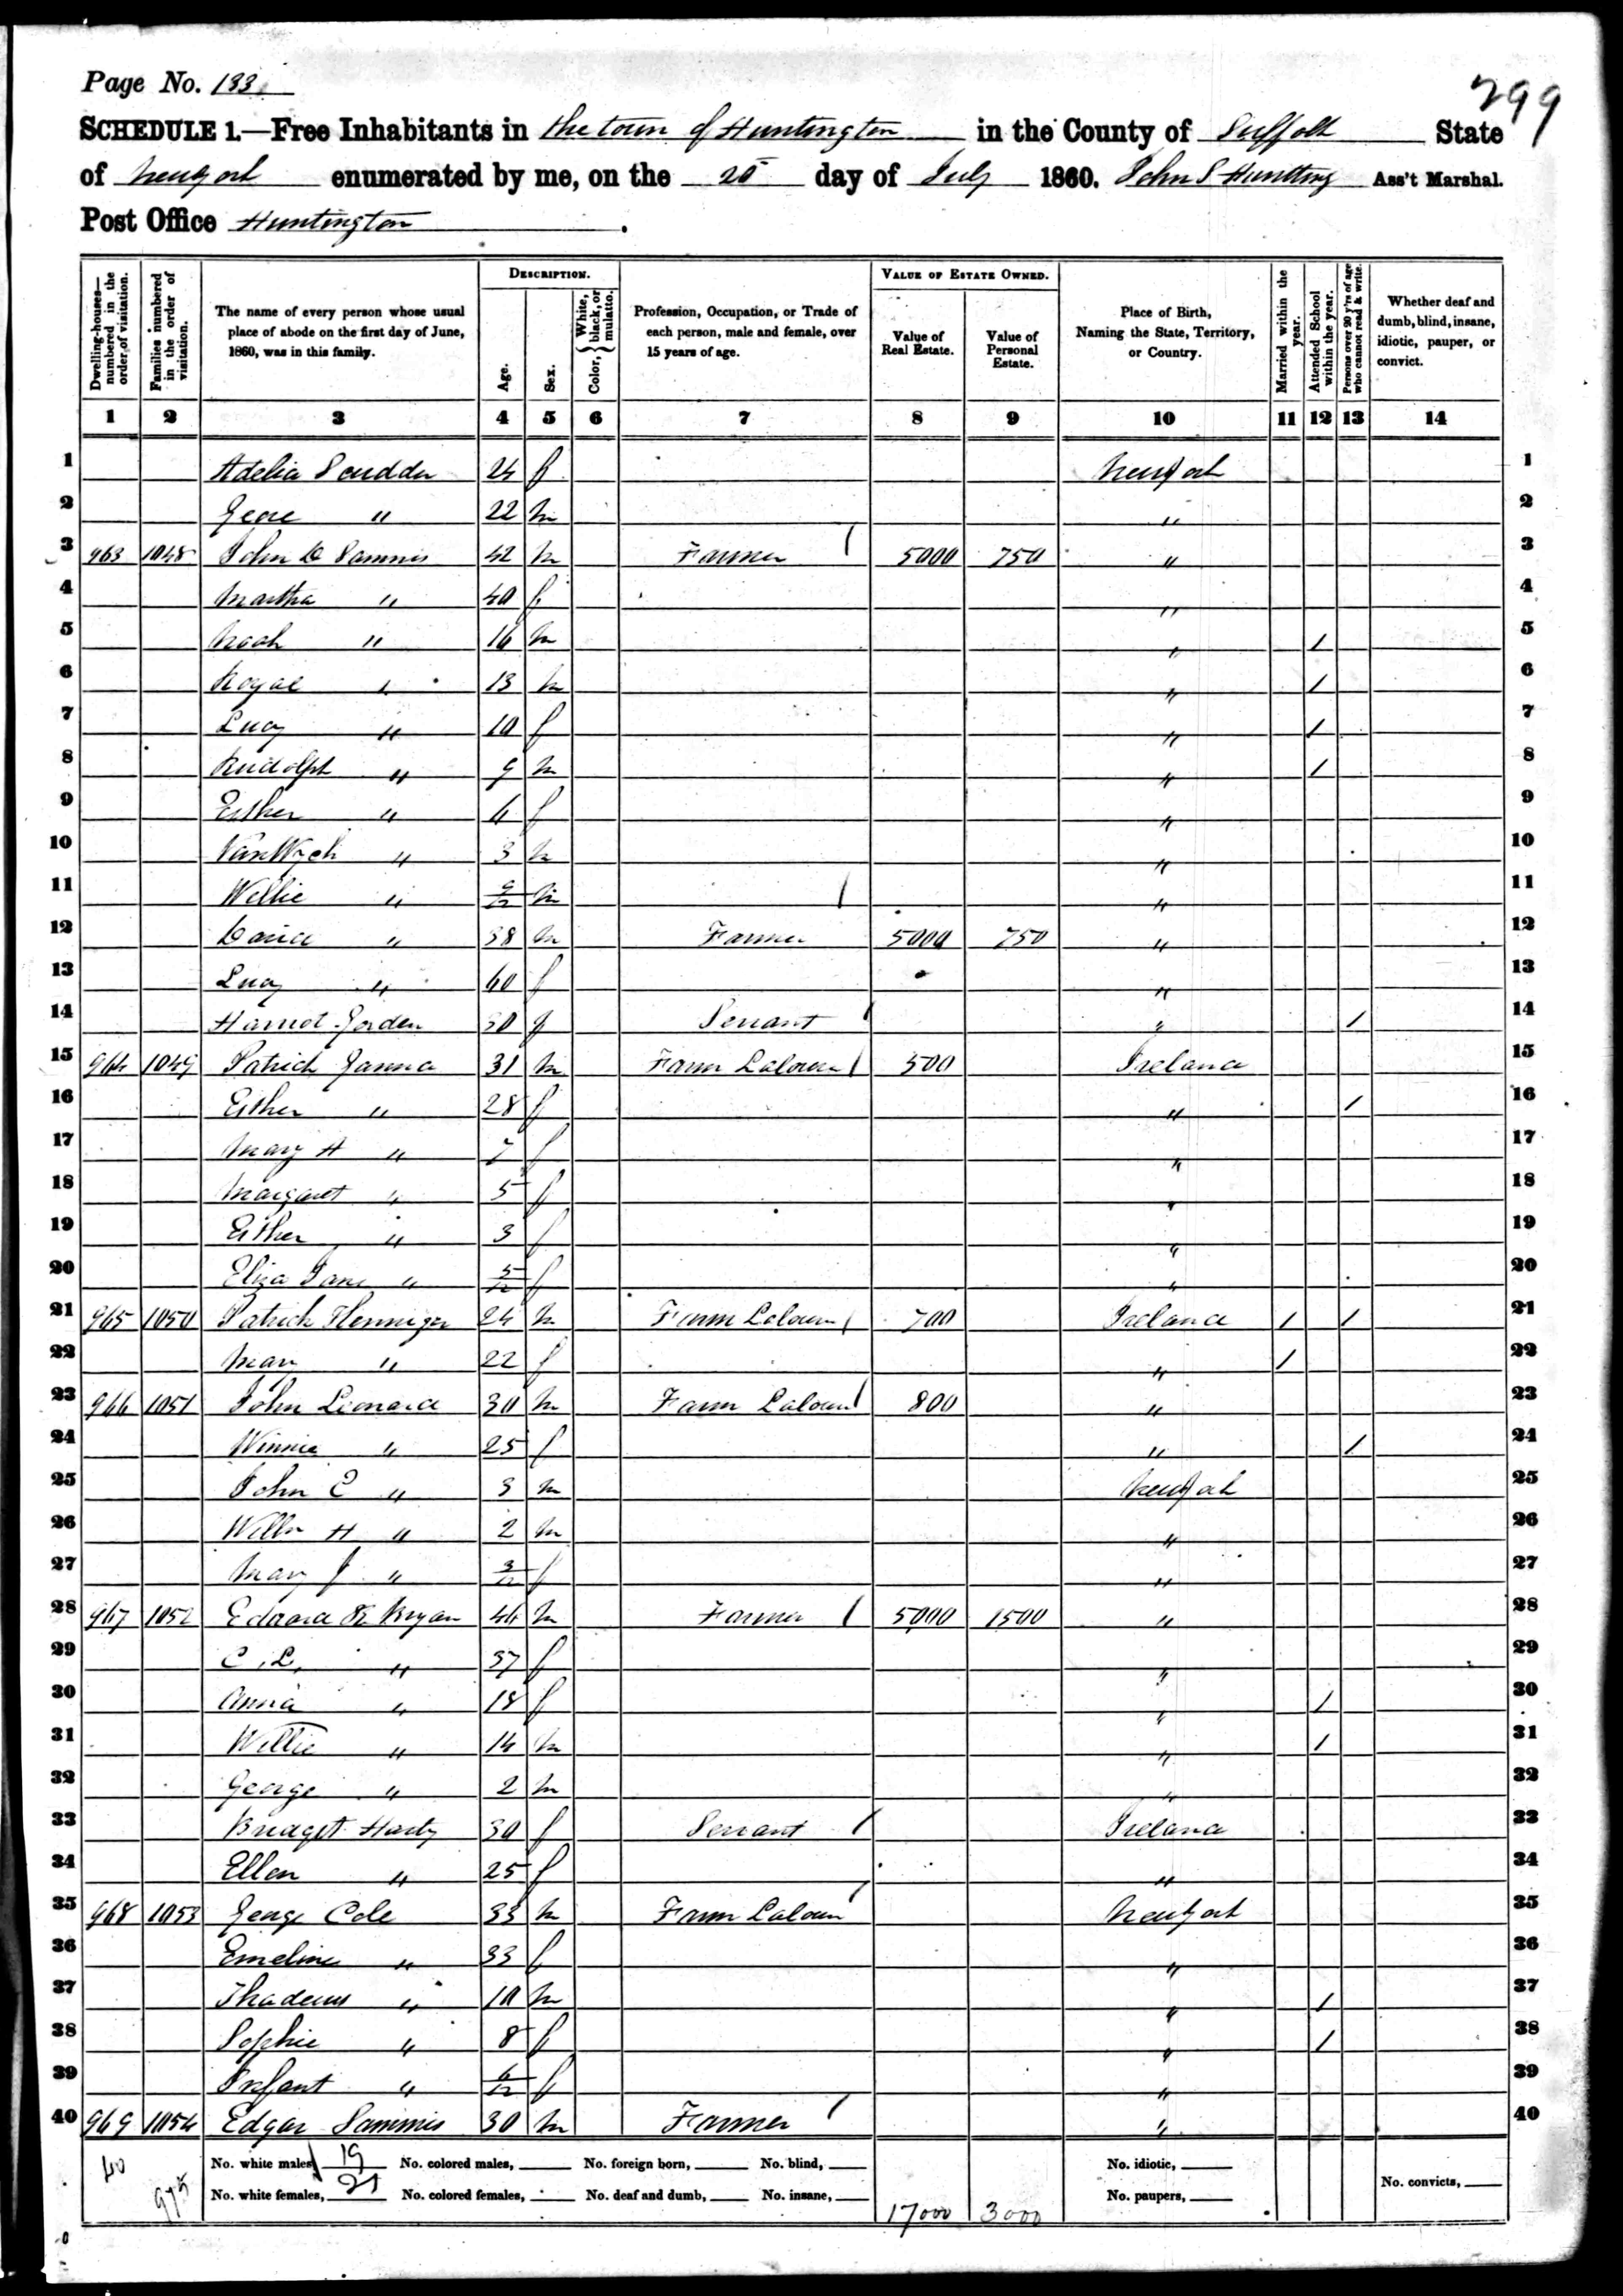 Page No. 133
299
SCHEDULE 1.—Free Inhabitants in the town of Huntington in the County of Suffolk State
of New York enumerated by me, on the 25 day of July 1860. John S Huntting Ass't Marshal.
Post Office Huntington.
Dwelling-houses—numbered in the order of visitation. Families numbered in the order of visitation. The name of every person whose usual place of abode on the first day of June, 1860, was in this family. DESCRIPTION. Age. Sex. Color, { White, black, or mulatto. Profession, Occupation, or Trade of each person, male and female, over 15 years of age. VALUE OF ESTATE OWNED. Value of Real Estate. Value of Personal Estate. Place of Birth, Naming the State, Territory, or Country. Married within the year. Attended School within the year. Persons over 20 y'rs of age who cannot read & write. Whether deaf and dumb, blind, insane, idiotic, pauper, or convict.
1 2 3 4 5 6 7 8 9 10 11 12 13 14
1 Adelia Scudder 24 f New York 1
2 " 22 m " 2
3 963 1048 John D Sammis 42 m Farmer / 5000 750 " 3
4 Martha " 40 f " 4
5 Noah " 16 m " / 5
6 Royal " 13 m " / 6
7 Lucy " 10 f " / 7
8 Rudolph " 9 m " / 8
9 Esther " 6 f " 9
10 VanWyck " 3 m " 10
11 Willie " 9/12 m / " 11
12 David " 38 m Farmer 5000 750 " 12
13 Lucy " 60 f " 13
14 Harriot Jorden 50 f Servant / " / 14
15 964 1049 Patrick 31 m Farm Labourer / 500 Ireland 15
16 Esther " 28 f " / 16
17 Mary A " 7 f " 17
18 Margaret " 5 f " 18
19 Esther " 3 f " 19
20 Eliza Jane " 5/12 f " 20
21 965 1050 Patrick 24 m Farm Labourer / 700 Ireland / / 21
22 Mary " 22 f " / 22
23 966 1051 John Leonard 30 m Farm Labourer / 800 " 23
24 Winnie " 25 f " / 24
25 John C " 3 m New York 25
26 Willm H " 2 m " 26
27 Mary J " 3/12 f " 27
28 967 1052 Edward K Bryan 46 m Farmer / 5000 1500 " 28
29 C. L. " 37 f " 29
30 Anna " 18 f " / 30
31 Willie " 14 m " / 31
32 George " 2 m " 32
33 Bridget Harty 30 f Servant / Ireland 33
34 Ellen " 25 f " 34
35 968 1053 George Cole 33 m Farm Labourer / New York 35
36 Emeline " 33 f " 36
37 Thadeus " 10 m " / 37
38 Sophie " 8 f " / 38
39 Infant " 6/12 f " 39
40 969 1054 Edgar Sammis 30 m Farmer / " 40
40 975
No. white males, 19 No. colored males, No. foreign born, No. blind, No. idiotic,
No. white females, 21 No. colored females, No. deaf and dumb, No. insane, 17000 3000 No. paupers, No. convicts,